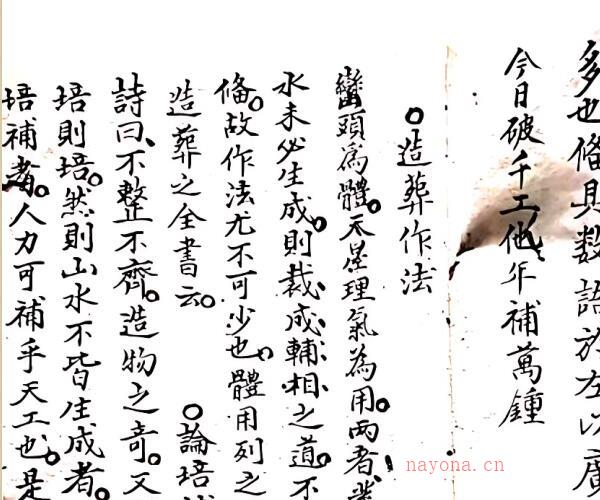 多也俻具数語於左以廣
今日破千工他年補萬鍾
○造葬作法
巒頭為體。天星理氣為用。両者兼
水未必生成。則裁成輔相之道。不
俻。故作法尤不可少也。體用列之
造葬之全書云。 ○論培
詩曰、不整不齊。造物之竒。又
培則培。然則山水不皆生成者。
培補者。人力可補乎天工也。是
nayona.cn